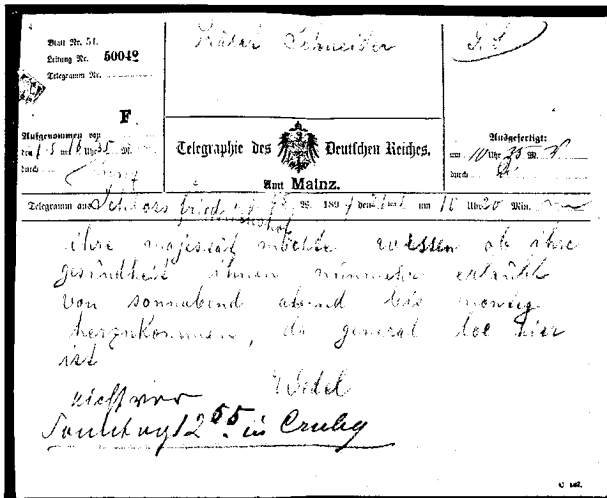 Blatt Nr. 51.
Leitung Nr. 50042
Telegramm Nr.
Schneider
F.
Aufgenommen von
den Uhr 35 M.
durch
Telegraphie des Deutschen Reiches.
Amt Mainz.
Ausgefertigt:
um 10 Uhr 35 M.
durch
Telegramm aus Schloss Friedrichshof W. 189 den um 10 Uhr 20 Min.
ihre majestät möchte wissen ob ihre
gesundheit ihnen nunmehr erlaubt
von sonnabend abend bis montag
herzukommen, da general loe hier
ist
Wedel
nicht vor
Sonntag 12 55 in